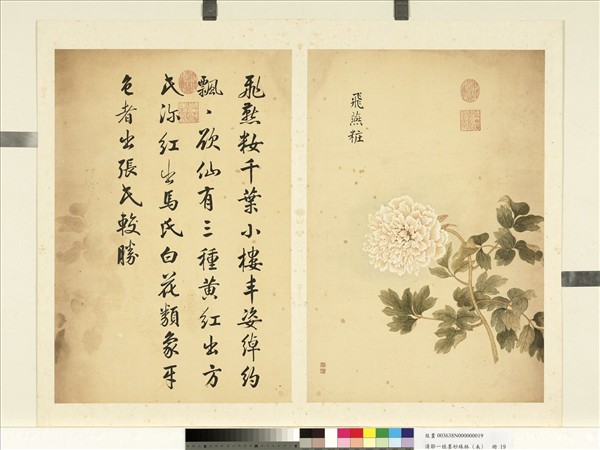 飛燕粧
飛燕粧千葉小樓丰姿綽約
飄〻欲仙有三種黃紅出方
氏深紅出馬氏白花類象牙
色者出張氏較勝
故畫 003638N00000019
清鄒一桂墨妙珠林（未） 冊 19